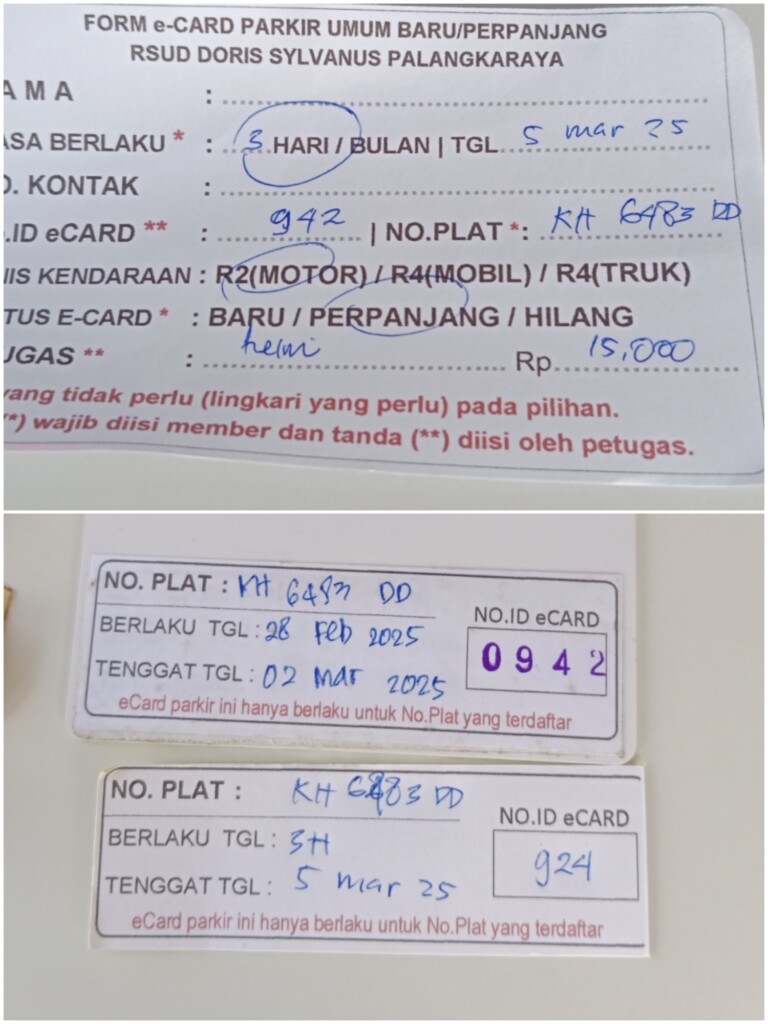 FORM e-CARD PARKIR UMUM BARU/PERPANJANG
RSUD DORIS SYLVANUS PALANGKARAYA
AMA :
ASA BERLAKU * : 3 HARI / BULAN | TGL 5 mar 25
O. KONTAK :
.ID eCARD ** : 942 | NO.PLAT *: KH 6483 DD
NIS KENDARAAN : R2(MOTOR) / R4(MOBIL) / R4(TRUK)
TUS E-CARD * : BARU / PERPANJANG / HILANG
UGAS ** : helmi Rp 15,000
yang tidak perlu (lingkari yang perlu) pada pilihan.
(*) wajib diisi member dan tanda (**) diisi oleh petugas.
NO. PLAT : KH 6483 DD
BERLAKU TGL : 28 Feb 2025
TENGGAT TGL : 02 Mar 2025
NO.ID eCARD
0942
eCard parkir ini hanya berlaku untuk No.Plat yang terdaftar
NO. PLAT : KH 6483 DD
BERLAKU TGL : 3H
TENGGAT TGL : 5 mar 25
NO.ID eCARD
924
eCard parkir ini hanya berlaku untuk No.Plat yang terdaftar